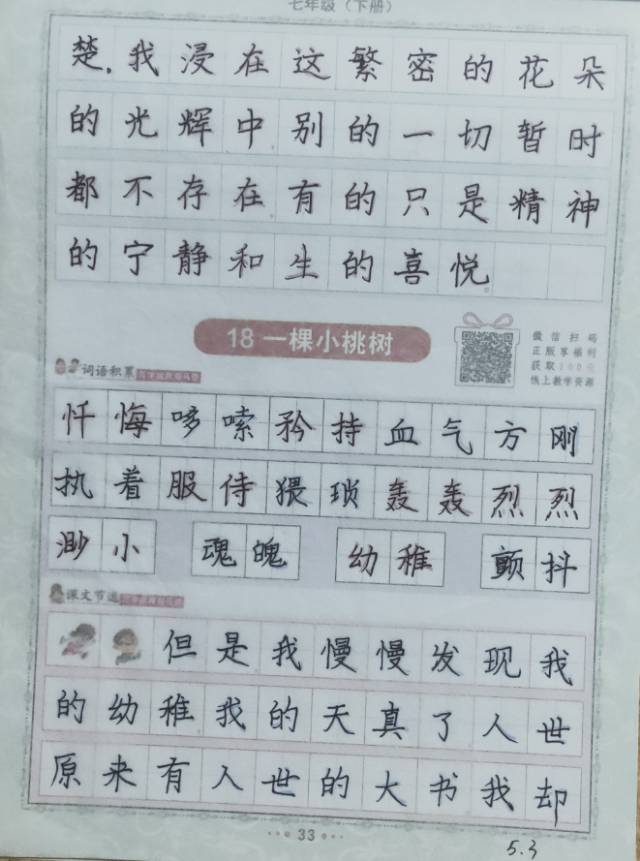 七年级（下册）
楚.我浸在这繁密的花朵
的光辉中别的一切暂时
都不存在有的只是精神
的宁静和生的喜悦。
18 一棵小桃树
微信扫码
正版享福利
获取100元
线上教学资源
词语积累
忏悔哆嗦矜持血气方刚
执着服侍猥琐轰轰烈烈
渺小 魂魄 幼稚 颤抖
课文节选
但是我慢慢发现我
的幼稚我的天真了人世
原来有人世的大书我却
33
5.3